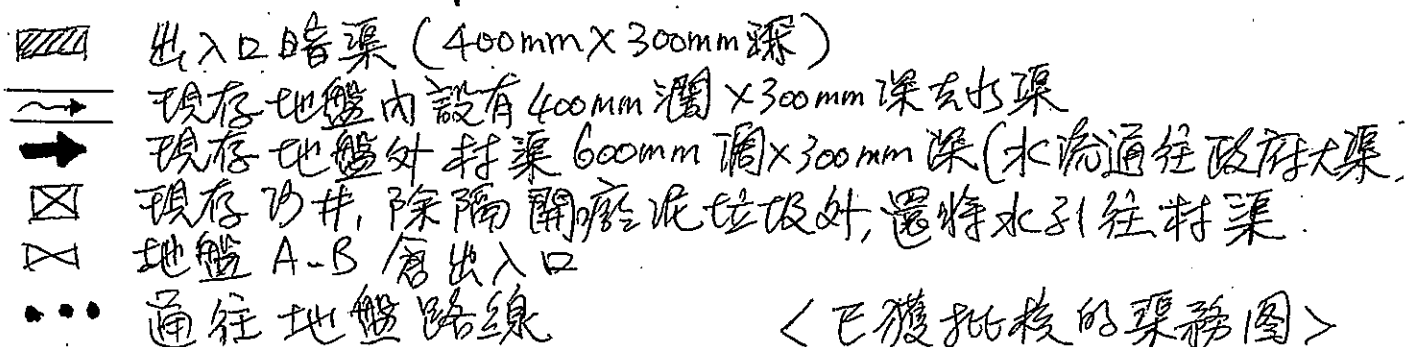 出入口暗渠(400mm×300mm深)
現存地盤內設有400mm濶×300mm深去水渠
現存地盤外村渠600mm濶×300mm深(水流通往政府大渠)
現存沙井,除隔開瘀泥垃圾外,還將水引往村渠.
地盤A-B倉出入口
通往地盤路線 <已獲批核的渠務图>